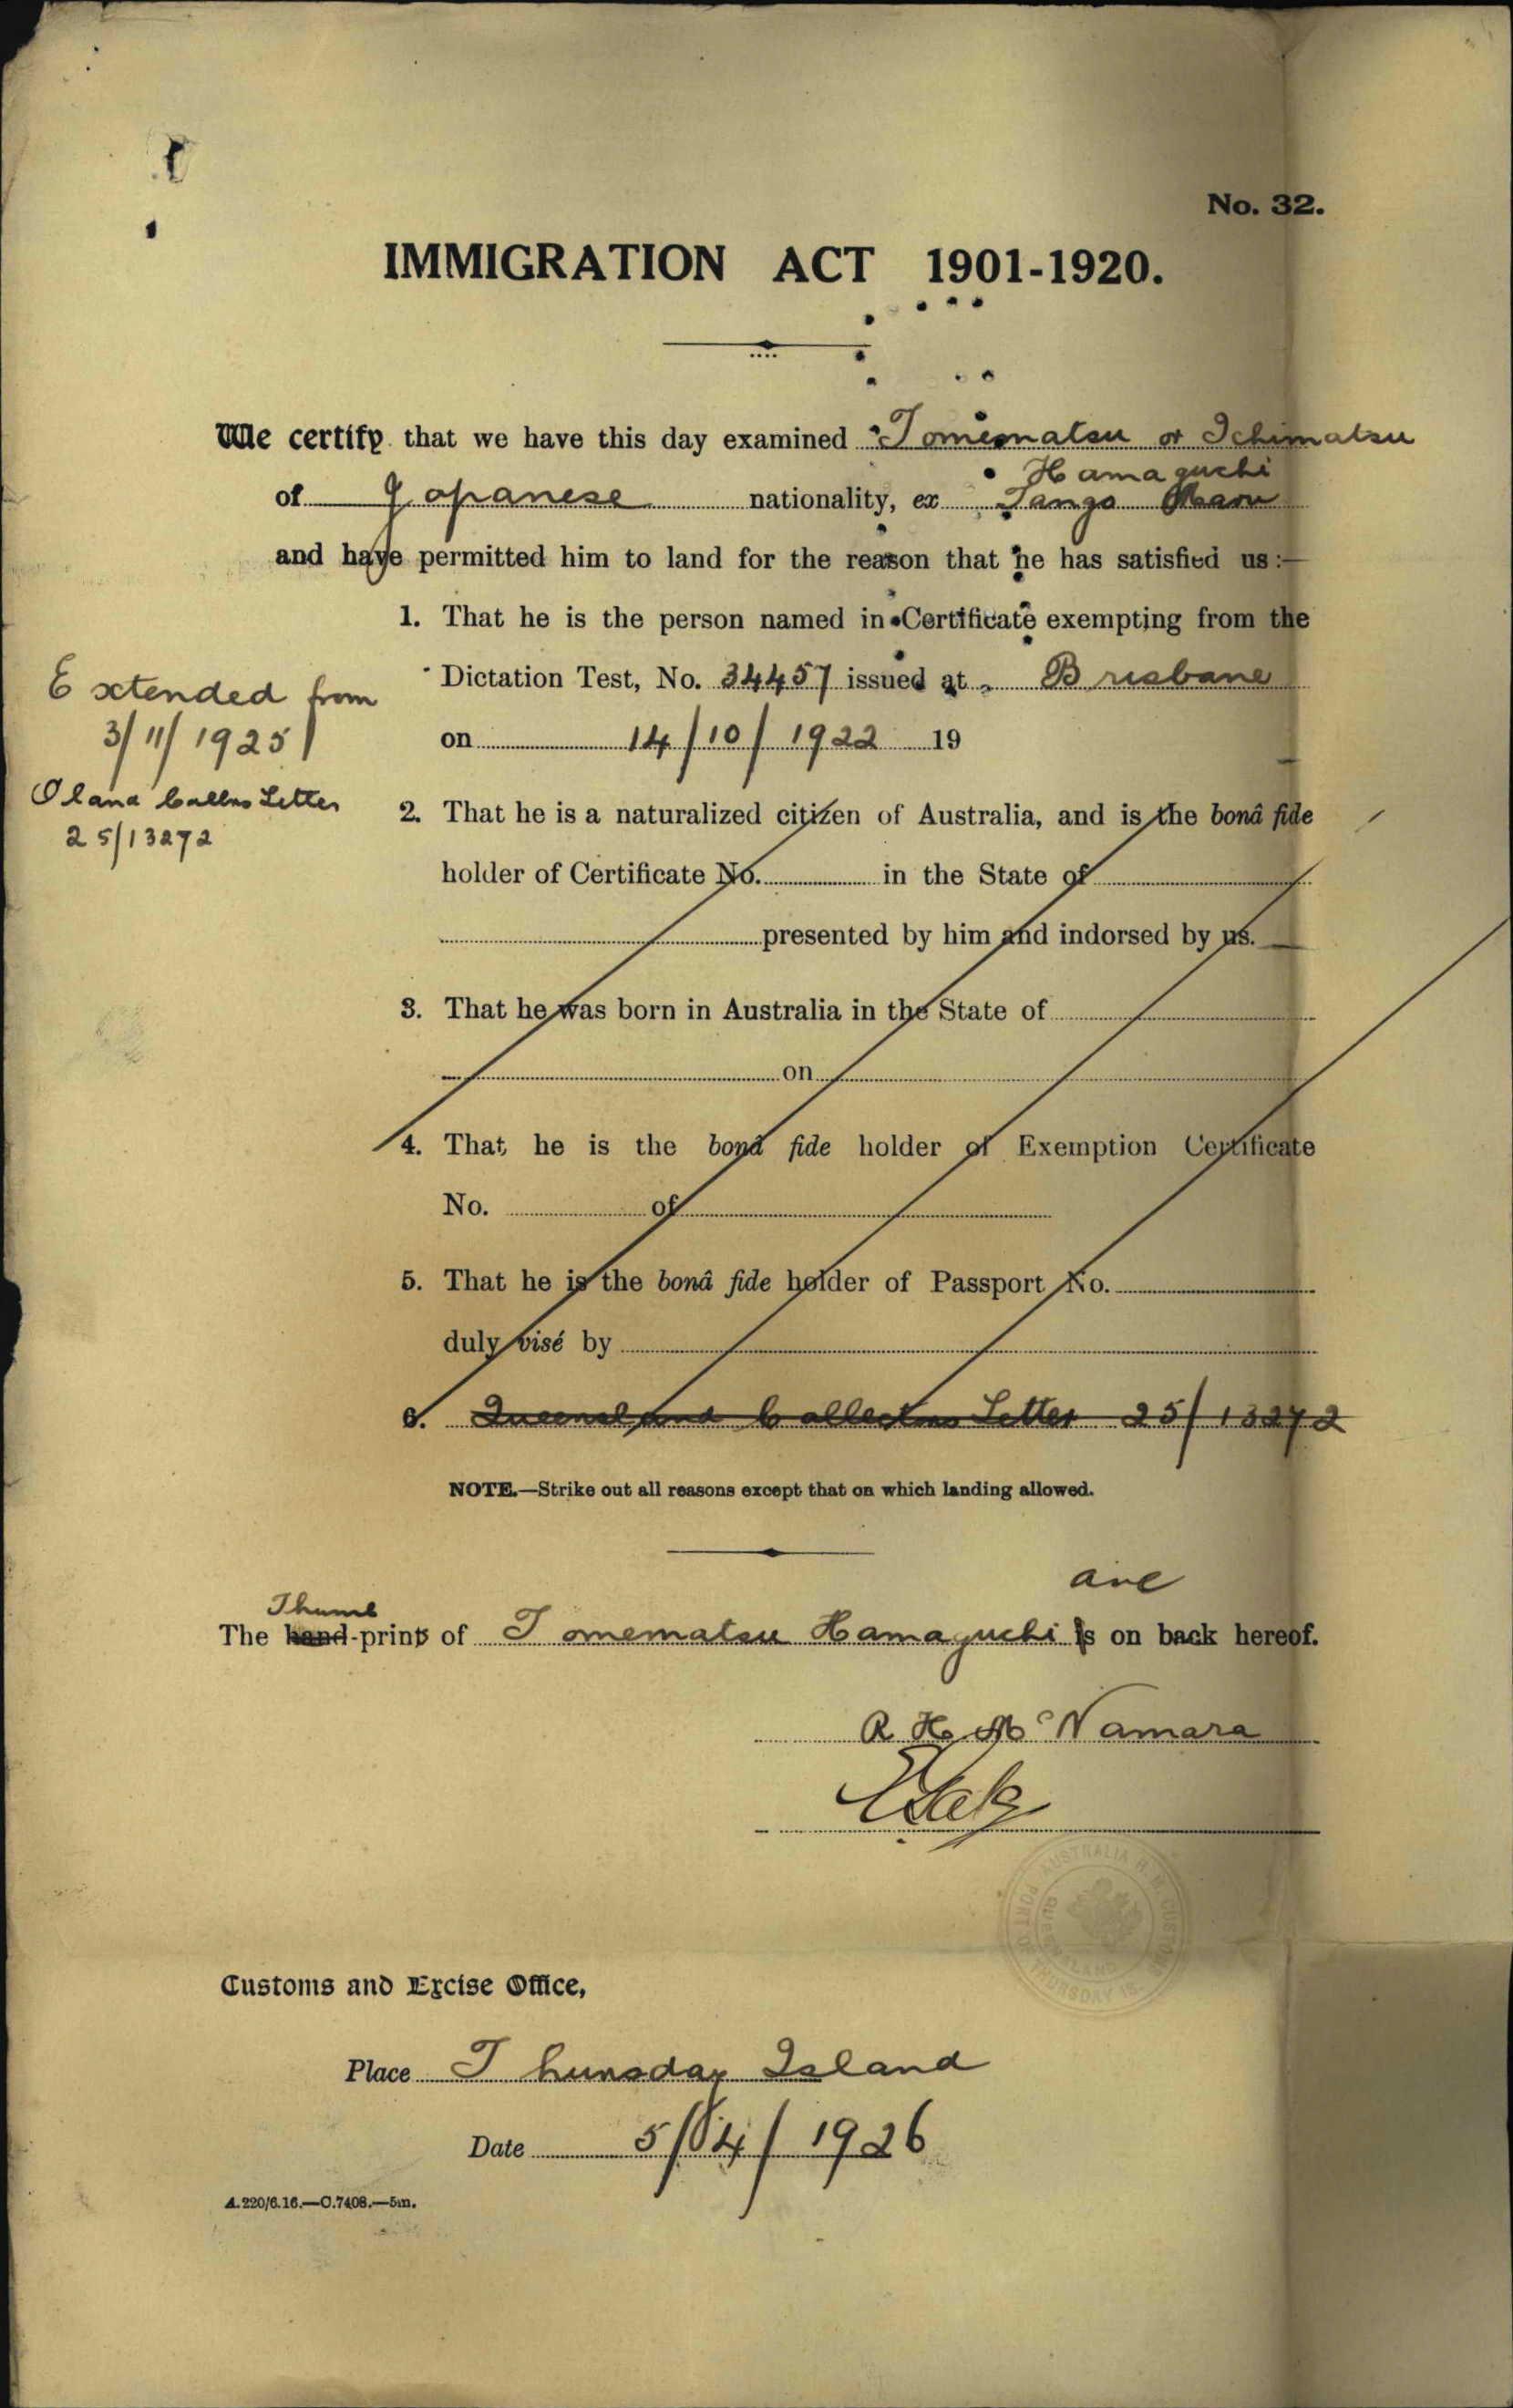 No. 32.
IMMIGRATION ACT 1901-1920.
We certify that we have this day examined Tomematsu or Ichimatsu
Hamaguchi
of Japanese nationality, ex Tango Maru
and have permitted him to land for the reason that he has satisfied us:—
1. That he is the person named in Certificate exempting from the
Dictation Test, No. 34457 issued at Brisbane
on 14/10/1922 19
Extended from
3/11/1925
Qland Collrs Letter
25/13272
2. That he is a naturalized citizen of Australia, and is the bonâ fide
holder of Certificate No. in the State of
presented by him and indorsed by us.
3. That he was born in Australia in the State of
on
4. That he is the bonâ fide holder of Exemption Certificate
No. of
5. That he is the bonâ fide holder of Passport No.
duly visé by
6. Queensland Collectors Letter 25/13272
NOTE.—Strike out all reasons except that on which landing allowed.
are
Thumb
The hand-prints of Tomematsu Hamaguchi is on back hereof.
R H McNamara
AUSTRALIA H.M. CUSTOMS
QUEENSLAND
PORT OF THURSDAY IS.
Customs and Excise Office,
Place Thursday Island
Date 5/04/1926
A.220/6.16.—C.7408.—5m.